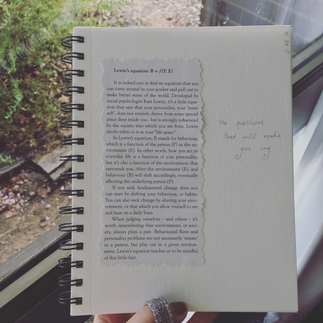 Lewin's equation: B = ƒ(P, E)
It is indeed rare to find an equation that you
can carry around in your pocket and pull out to
make better sense of the world. Developed by
social psychologist Kurt Lewin, it's a little equa-
tion that says that your personality, your 'inner
self', does not entirely derive from some special
place deep inside you - but is strongly influenced
by the society into which you are born. Lewin
nicely refers to it as your "life space".
In Lewin's equation, B stands for behaviour,
which is a function of the person (P), in the en-
vironment (E). In other words, how you act in
everyday life is a function of your personality,
but it's also a function of the environment that
surrounds you. Alter the environment (E), and
behaviour (B) will shift accordingly, eventually
affecting the underlying person (P).
If you seek fundamental change then you
can start by shifting your behaviour, or habits.
You can also seek change by altering your envi-
ronment, or that which you allow yourself to see
and hear on a daily basis.
When judging ourselves - and others - it's
worth remembering that environment, or soci-
ety, always plays a part. Behavioural flaws and
personality problems are not necessarily 'innate'
to a person, but play out in a given environ-
ment. Lewin's equation teaches us to be mindful
of this little fact.
the questions
that will make
you cry